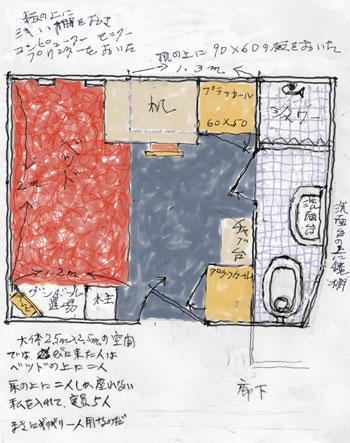 板の上に
浅い棚をおき
コンピューター モニター
プリンターをおいた
机の上に 90×60の板をおいた
1.3m
机
プラッカール
60×50
シャワー
ベッド
2m
洗面台
洗面台の上に鏡、棚
台
プラッカール
1.2m
ダンボール
道場
柱
大体2.5m×2.5mの空間
では 遊びに来た人は
ベッドの上に二人
床の上に二人しか座れない
私を入れて、定員5人
まさにぎりぎり一人用なのだ
廊下